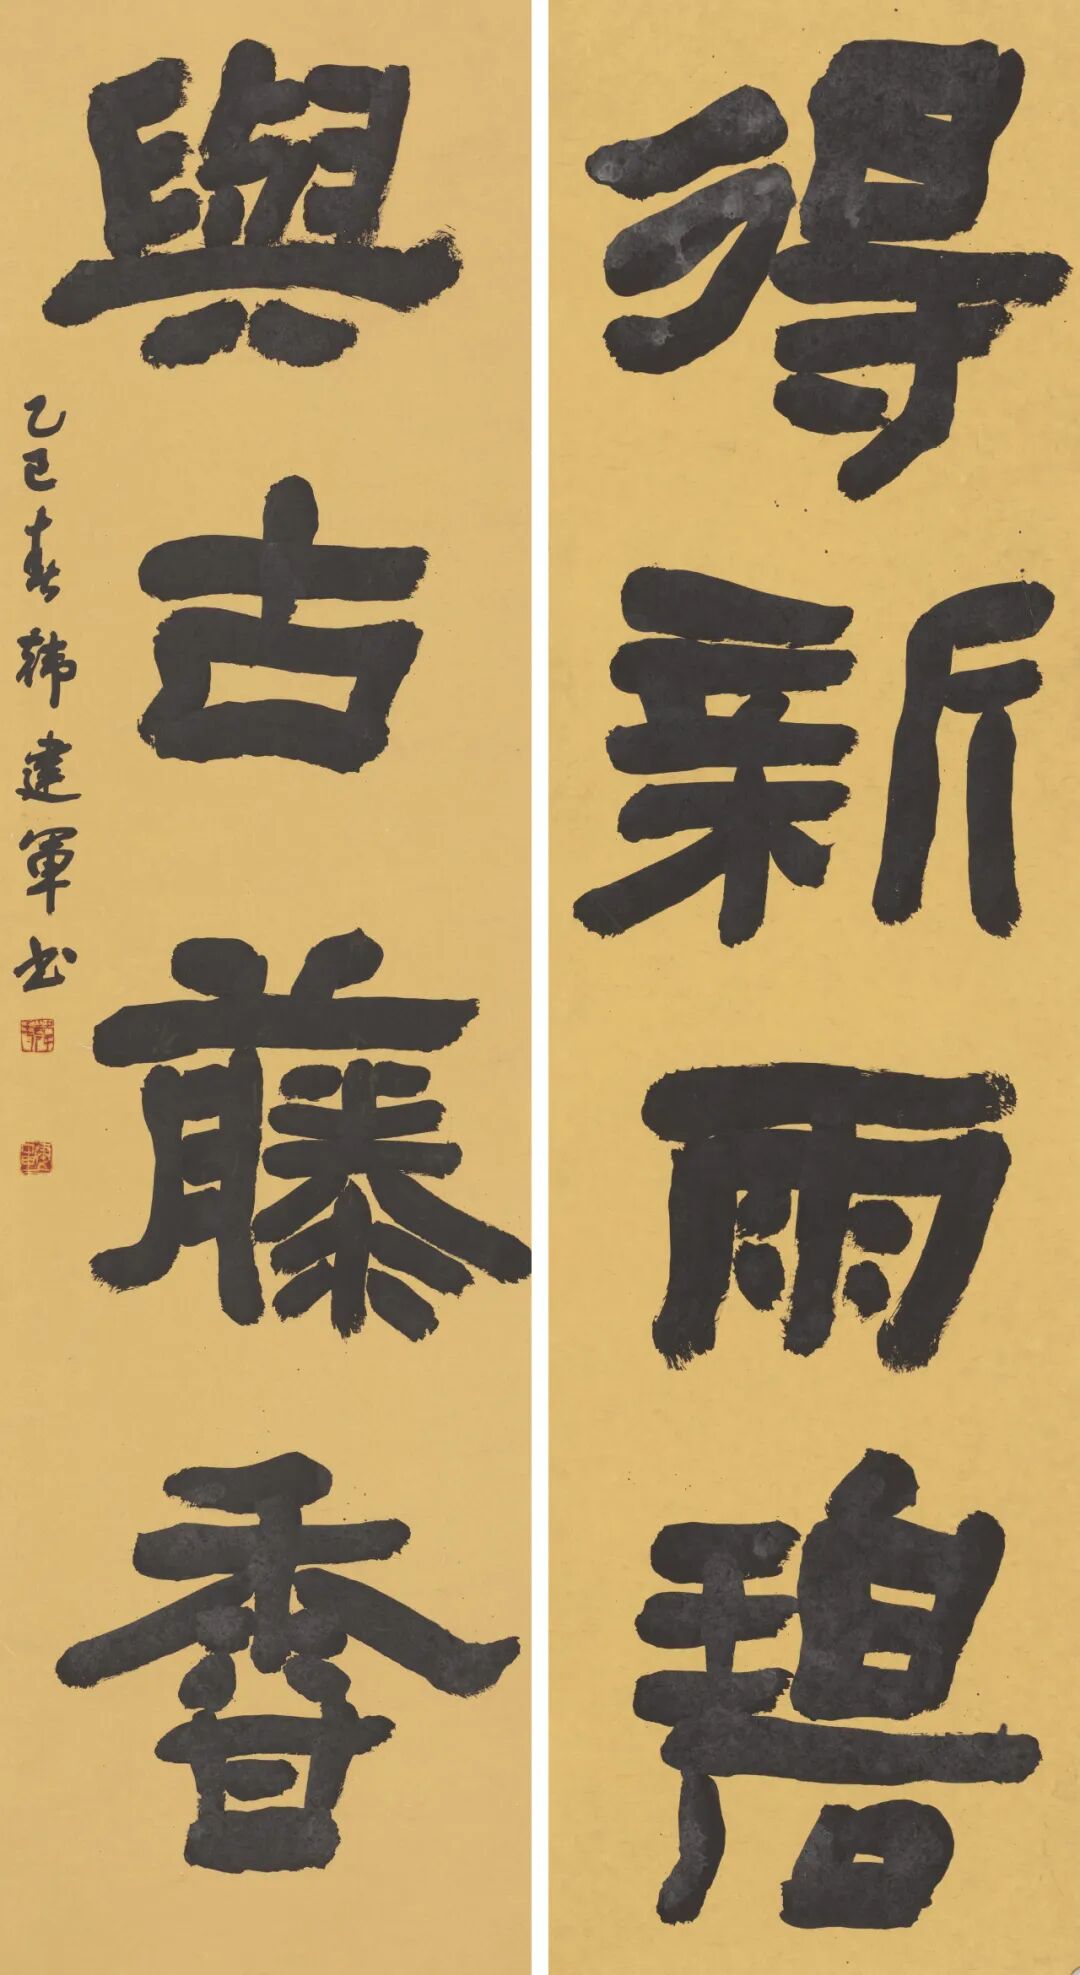 得新雨碧
與古藤香
乙巳春韩建军书